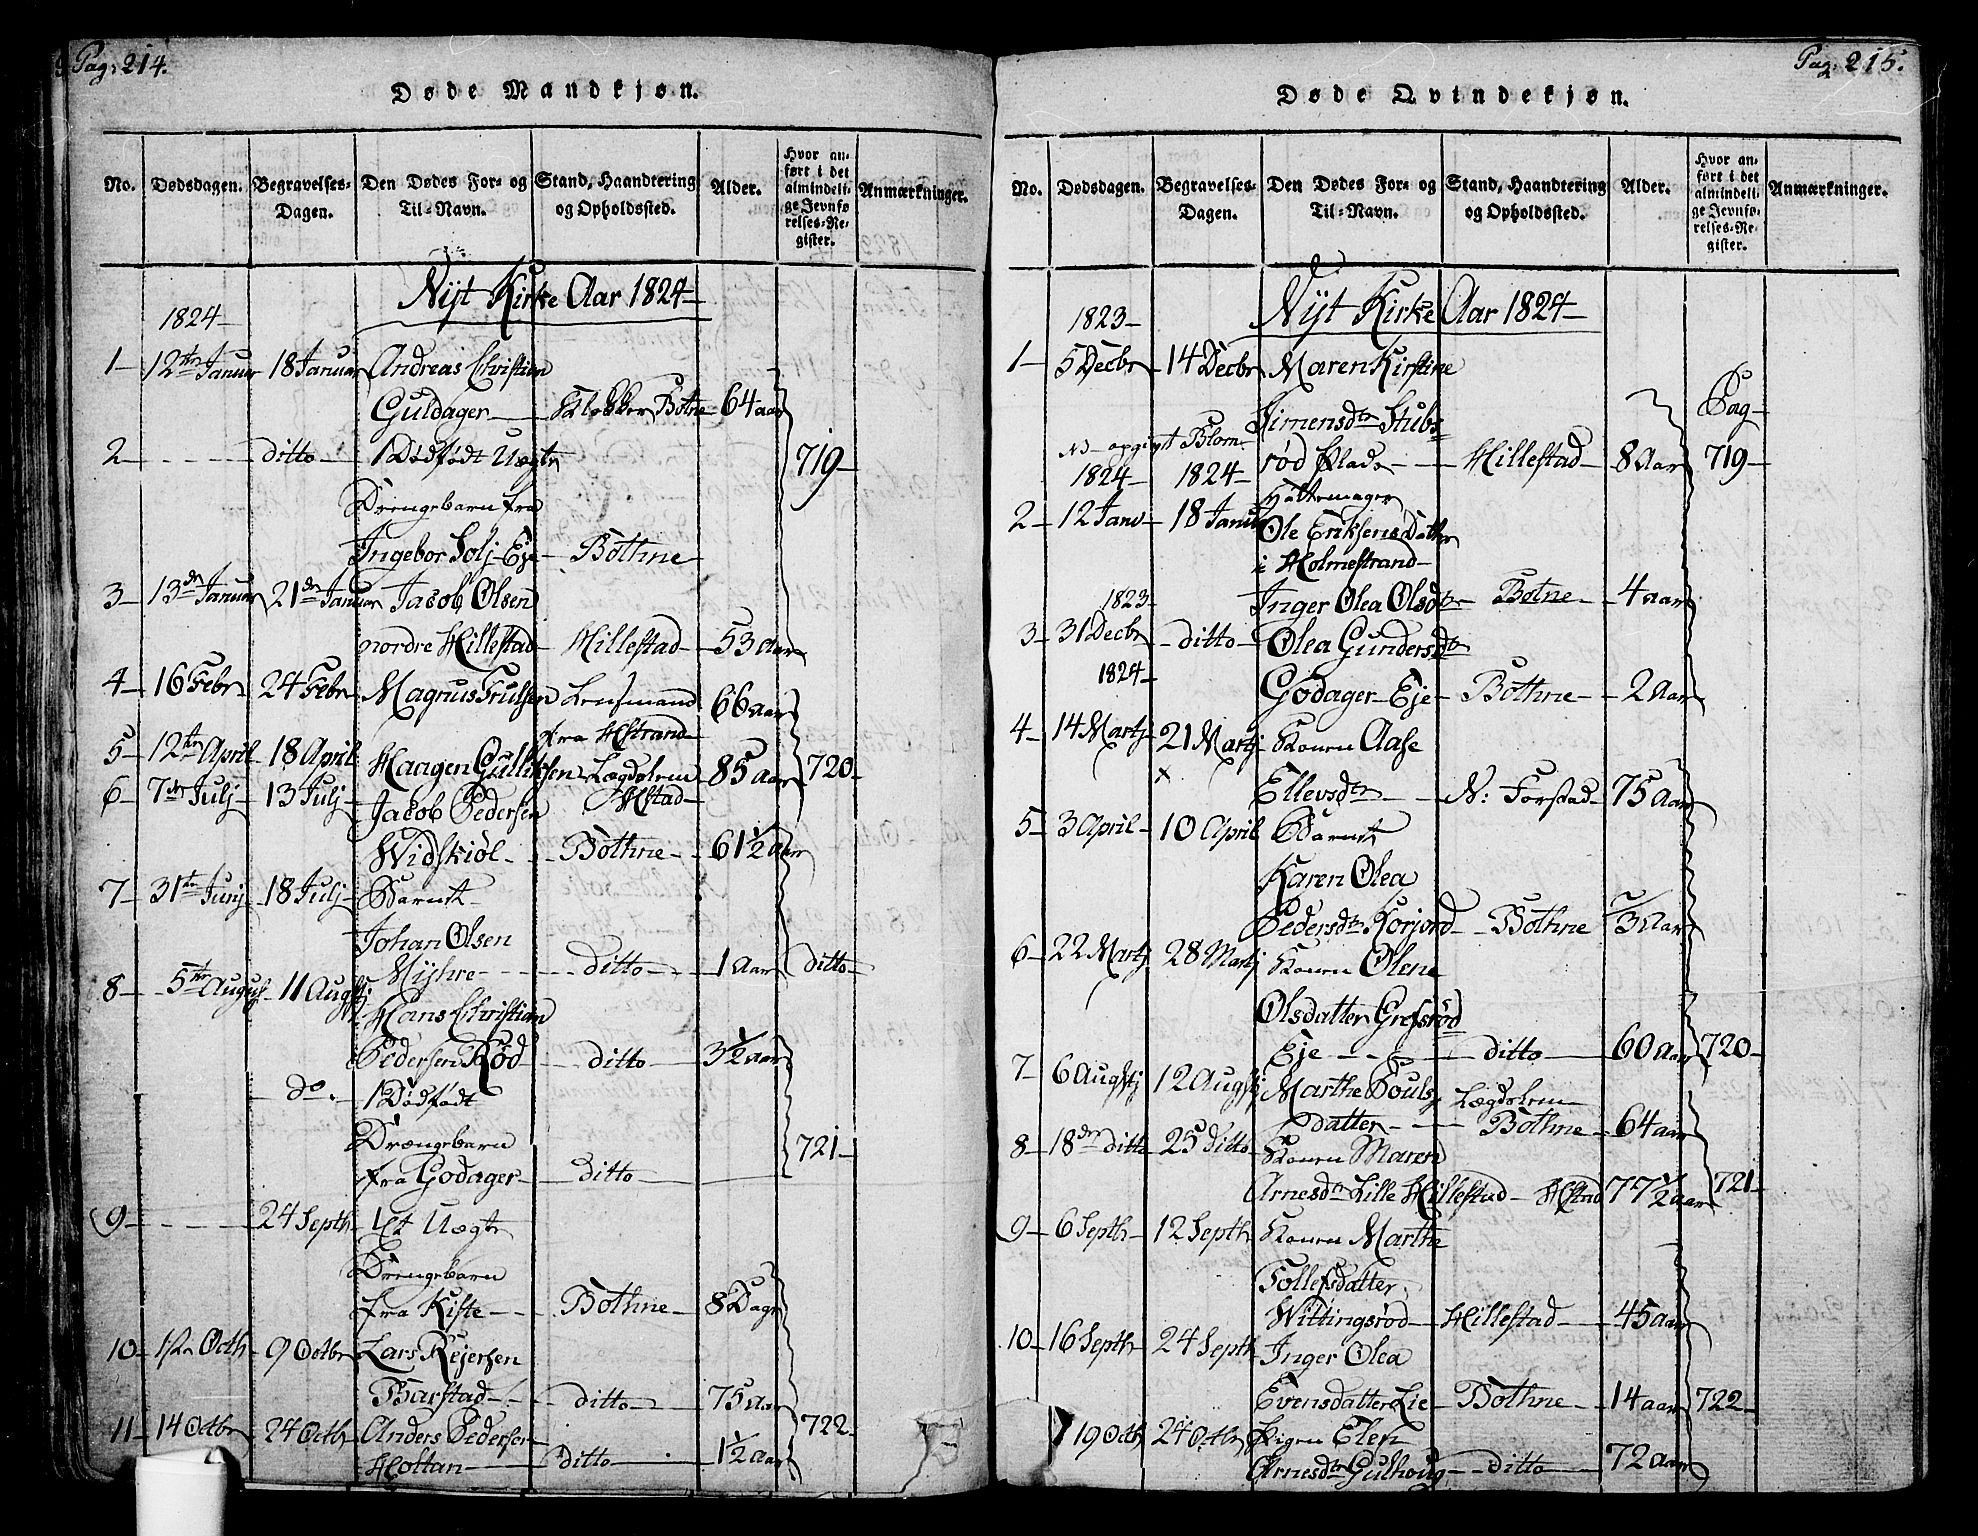 Pag: 214.
Døde Mandkjøn.
No. Dødsdagen. Begravelses-Dagen. Den Dødes For- og Til-Navn. Stand, Haandtering og Opholdssted. Alder. Hvor anført i det almindelige Jevnførelses-Register. Anmærkninger.
Nyt Kirke Aar 1824
1824
1 12te Januar 18 Januar Andreas Christian
Guldager Klokker Botne 64 aar
2 ditto 1 Dødfødt Uægte 719
Drengebarn fra
Ingebor Eje Bothne
3 13de Januar 21de Januar Jacob Olsen
nordre Hillestad Hillestad 53 Aar
4 16 Febr 24 Febr Magnus Trulsen Lensmand 66 aar
fra HStrand
5 12te April 18 April Haagen Gulliksen Lægdslem 85 aar 720
6 7de Julj 13 Julj Jacob Pedersen HStad
Widskiøl Bothne 61 1/2 aar
7 31te Junj 18 Julj Barnet
Johan Olsen
Myhre ditto 1 Aar ditto
8 5te August 11 Augstj Hans Christian
Pedersen Rød ditto 3 1/2 aar
do 1 Dødfødt
Drængebarn 721
fra Godager ditto
9 24 Septb 1 Et Uægte
Drengebarn
fra Kiste Bothne 8 Dage
10 1/2 Octb 9 Octbr Lars Rejersen
Barstad ditto 75 aar
11 14 Octbr 24 Octb Anders Pedersen 722
Holtan ditto 1 1/2 aar
Pag. 215.
Døde Qvindekjøn.
No. Dødsdagen. Begravelses-Dagen. Den Dødes For- og Til-Navn. Stand, Haandtering og Opholdssted. Alder. Hvor anført i det almindelige Jevnførelses-Register. Anmærkninger.
Nyt Kirke Aar 1824
1823
1 5 Decbr 14 Decbr Maren Kirstine
Simensdtr Stubs Pag
opgigt Blom
rød Plads Hillestad 8 Aar 719
1824 1824 Hattemager
2 12 Janv 18 Janua Ole Eriksens Datter
i Holmestrand
1823 Inger Olea Olsdtr Botne 4 aar
3 31 Decbr ditto Olea Gundersdtr
1824 Godager Eje Bothne 2 Aar
4 14 Martj 21 Martj Konen Aase
x Ellevsdtr N: Forstad 75 Aar
5 3 April 10 April Barnet
Karen Olea
Pedersdtr Korjord Bothne 3 Aar
6 22 Martj 28 Martj Konen Olene
Olsdatter Grefsrød
Eje ditto 60 Aar 720
7 6 Augstj 12 Augstj Marthe Pouls Lægdslem
datter Bothne 64 aar
8 18de ditto 25 ditto Konen Maren
Arnesdtr Lille Hillestad HStad 77 1/2 aar 721
9 6 Septb 12 Septb Konen Marthe
Tollefsdatter
Wittingsrød Hillestad 45 aar
10 16 Septb 24 Septb Inger Olea
Evensdatter Lie Bothne 14 aar 722
19 Octb 24 Octbr Pigen Elen
Arnesdtr Gulhoug ditto 72 aar